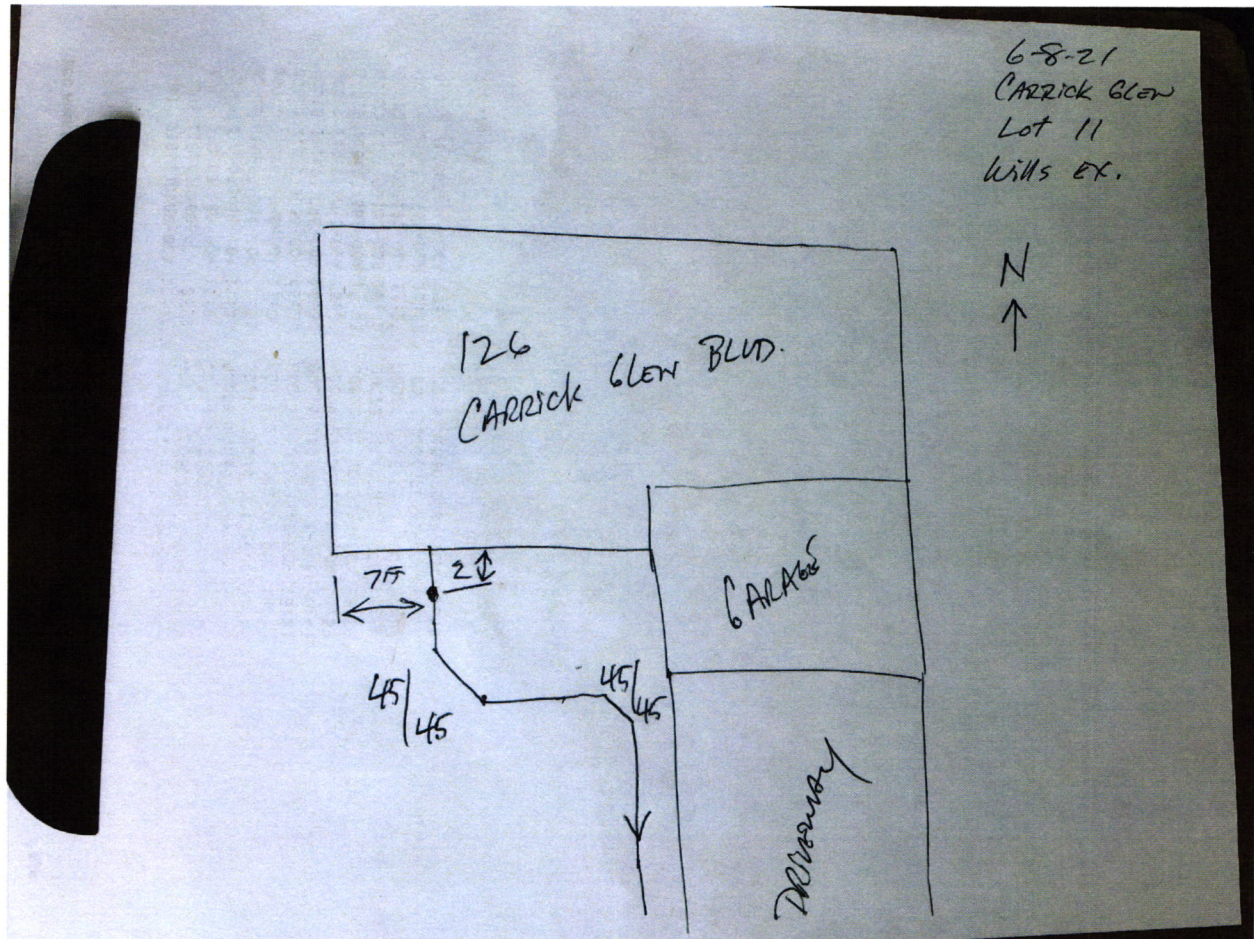 6-8-21
CARRICK GLEN
Lot 11
Wills EX.
N
126
CARRICK GLEN BLVD.
7FT
2
GARAGE
45/45
45/45
DRIVEWAY